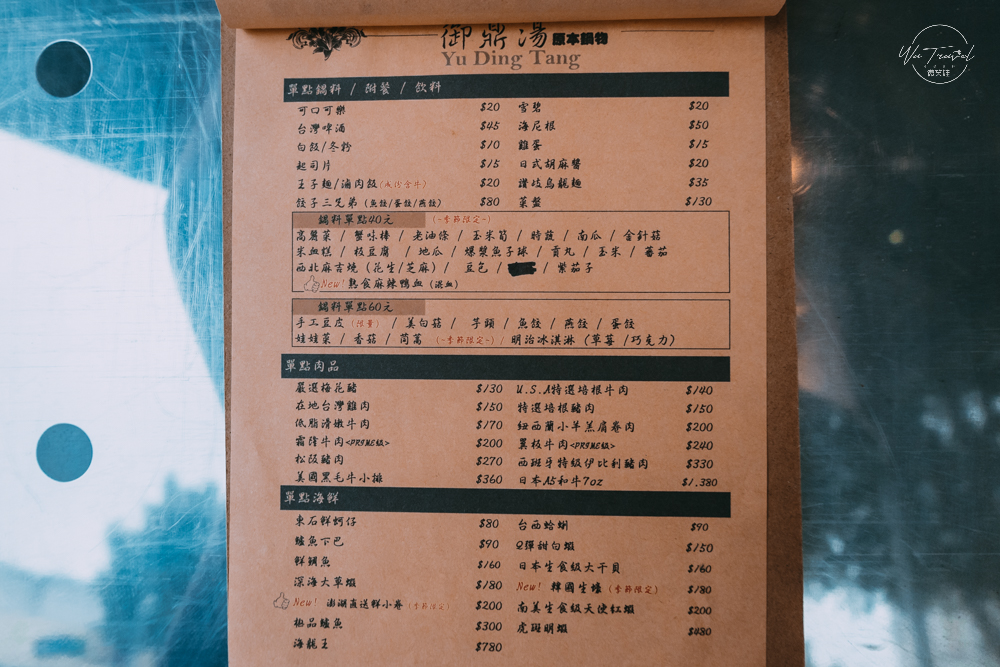 御鼎湯 原本鍋物
Yu Ding Tang
Wei Travel
微笑哇
單點鍋料 / 附餐 / 飲料
可口可樂 $20 雪碧 $20
台灣啤酒 $45 海尼根 $50
白飯/冬粉 $10 雞蛋 $15
起司片 $15 日式胡麻醬 $20
王子麵/滷肉飯(成份含牛) $20 讚岐烏龍麵 $35
餃子三兄弟 (魚餃/蛋餃/燕餃) $80 菜盤 $130
鍋料單點40元 (~季節限定~)
高麗菜 / 蟹味棒 / 老油條 / 玉米筍 / 時蔬 / 南瓜 / 金針菇
米血糕 / 板豆腐 / 地瓜 / 爆漿魚子球 / 貢丸 / 玉米 / 蕃茄
西北麻吉燒 (花生/芝麻) / 豆包 / / 紫茄子
New! 熟食麻辣鴨血 (混血)
鍋料單點60元
手工豆皮 (限量) / 美白菇 / 芋頭 / 魚餃 / 燕餃 / 蛋餃
娃娃菜 / 香菇 / 茼蒿 (~季節限定~) / 明治冰淇淋 (草莓 /巧克力)
單點肉品
嚴選梅花豬 $130 U.S.A特選培根牛肉 $140
在地台灣雞肉 $150 特選培根豬肉 $150
低脂滑嫩牛肉 $170 紐西蘭小羊羔肩卷肉 $200
霜降牛肉<PRIME級> $200 翼板牛肉<PRIME級> $240
松阪豬肉 $270 西班牙特級伊比利豬肉 $330
美國黑毛牛小排 $360 日本A5和牛7oz $1,380
單點海鮮
東石鮮蚵仔 $80 台西蛤蜊 $90
鱸魚下巴 $90 Q彈甜白蝦 $150
鮮鯛魚 $160 日本生食級大干貝 $160
深海大草蝦 $180 New! 韓國生蠔 (季節限定) $180
New! 澎湖直送鮮小卷 (季節限定) $200 南美生食級天使紅蝦 $200
極品鱸魚 $300 虎斑明蝦 $480
海龍王 $780